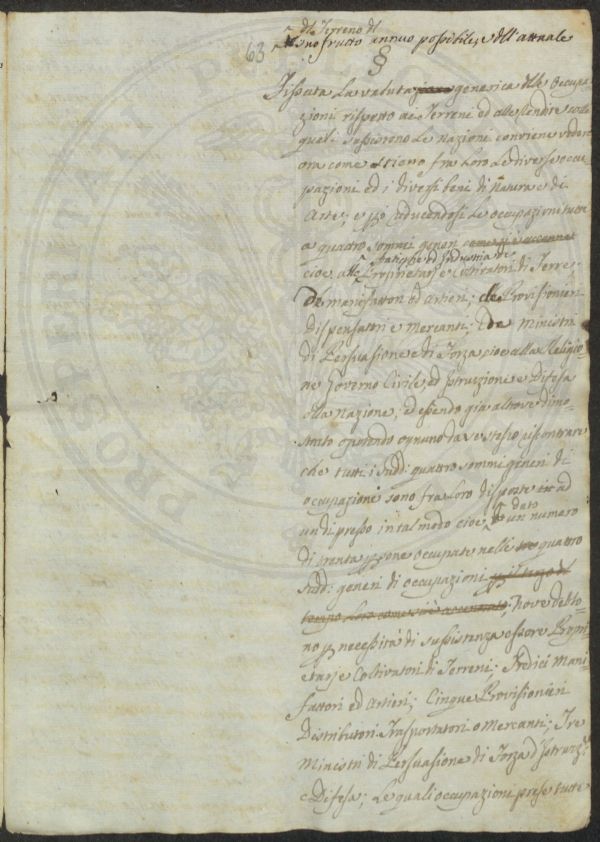 63
di Terreno di
suo frutto annuo possibile, e dell'attuale
§
Fissata la valuta generica delle Occupa
zioni rispetto ai Terreni ed alle Rendite
quali sussistono le Nazioni conviene vedere
ora come stieno fra loro le diverse occu
pazioni ed i diversi beni di Natura e di
Arte; e riducendosi le occupazioni tutte
a quattro sommi generi
Antistiche ed Industria
cioè alle Proprietarj e Coltivatori di Terre;
de manifattori ed Artieri; de Provisionieri
Dispensatori e Mercanti; de Ministri
di Persuasione e di Forza cioè alla Religio
ne Governo Civile, ed Istruzione e Difesa
alla Nazione; ed essendo già altrove dimo
strato potendo ognuno da se stesso riscontrare
che tutti i sudd: quattro sommi generi di
occupazione sono fra loro disposte ad
un di presso in tal modo cioè dato un numero
di trenta persone occupate nelli quattro
sudd: generi di occupazioni
tempo loro come si è accennato; Nove debbo
no per necessità di sussistenza essere Propri
etarj e Coltivatori di Terreni; Tredici Mani
fattori ed Artieri; Cinque Provisionieri
Distributori Trasportatori o Mercanti; Tre
Ministri di Persuasione di Forza d'Istruz:e
e Difesa; Le quali occupazioni prese tutte
PROSPERITATI PUBLICAE